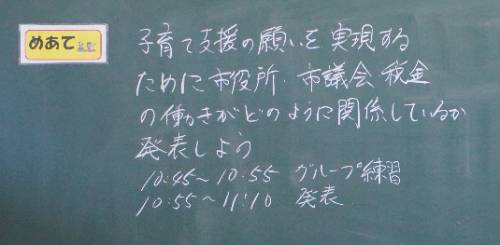 めあて
子育て支援の願いを実現する
ために市役所、市議会、税金
の働きがどのように関係しているか
発表しよう
10:45~10:55 グループ練習
10:55~11:10 発表